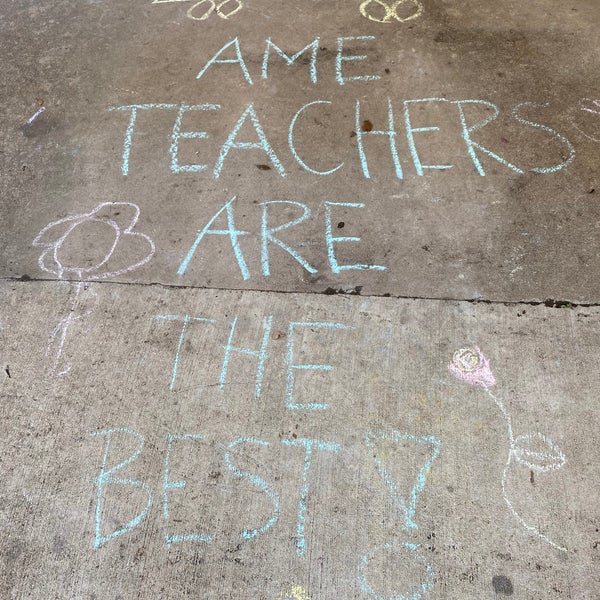 AME
TEACHERS
ARE
THE
BEST!